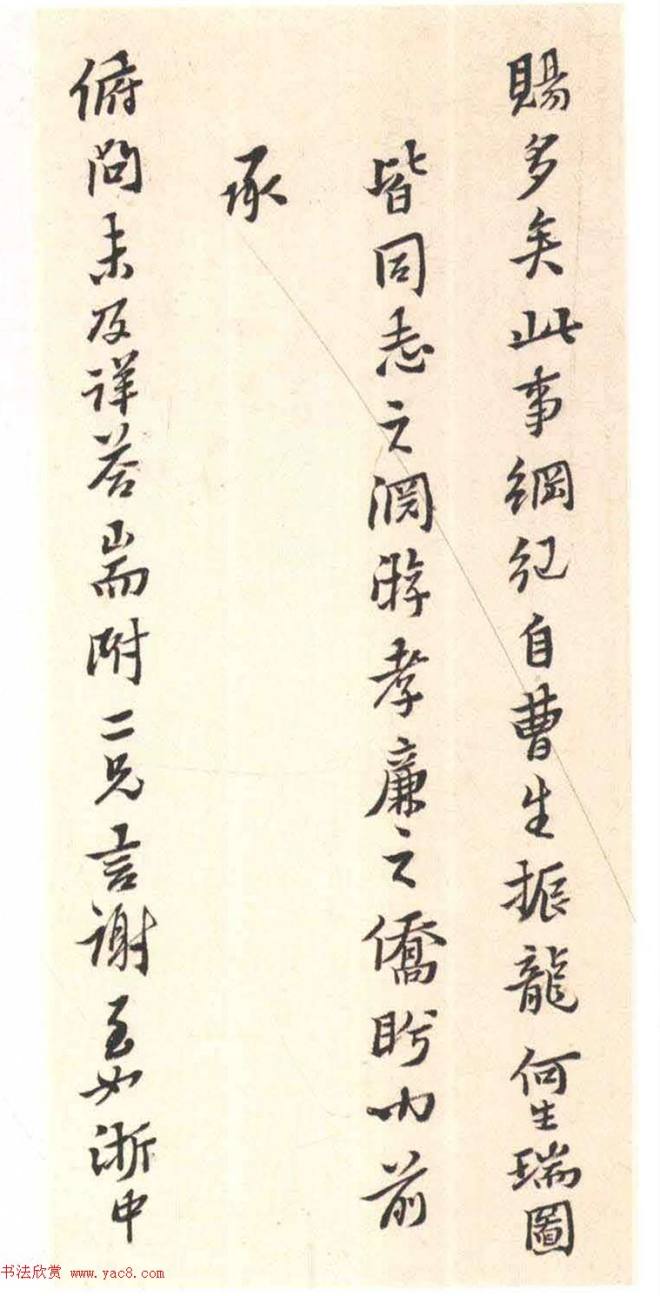 賜多矣此事綱紀自曹生振龍何生瑞圖
皆同志之淵游孝廉之僑盻也前
承
俯問未及詳答耑附二兄言謝至如浙中
书法欣赏 www.yac8.com